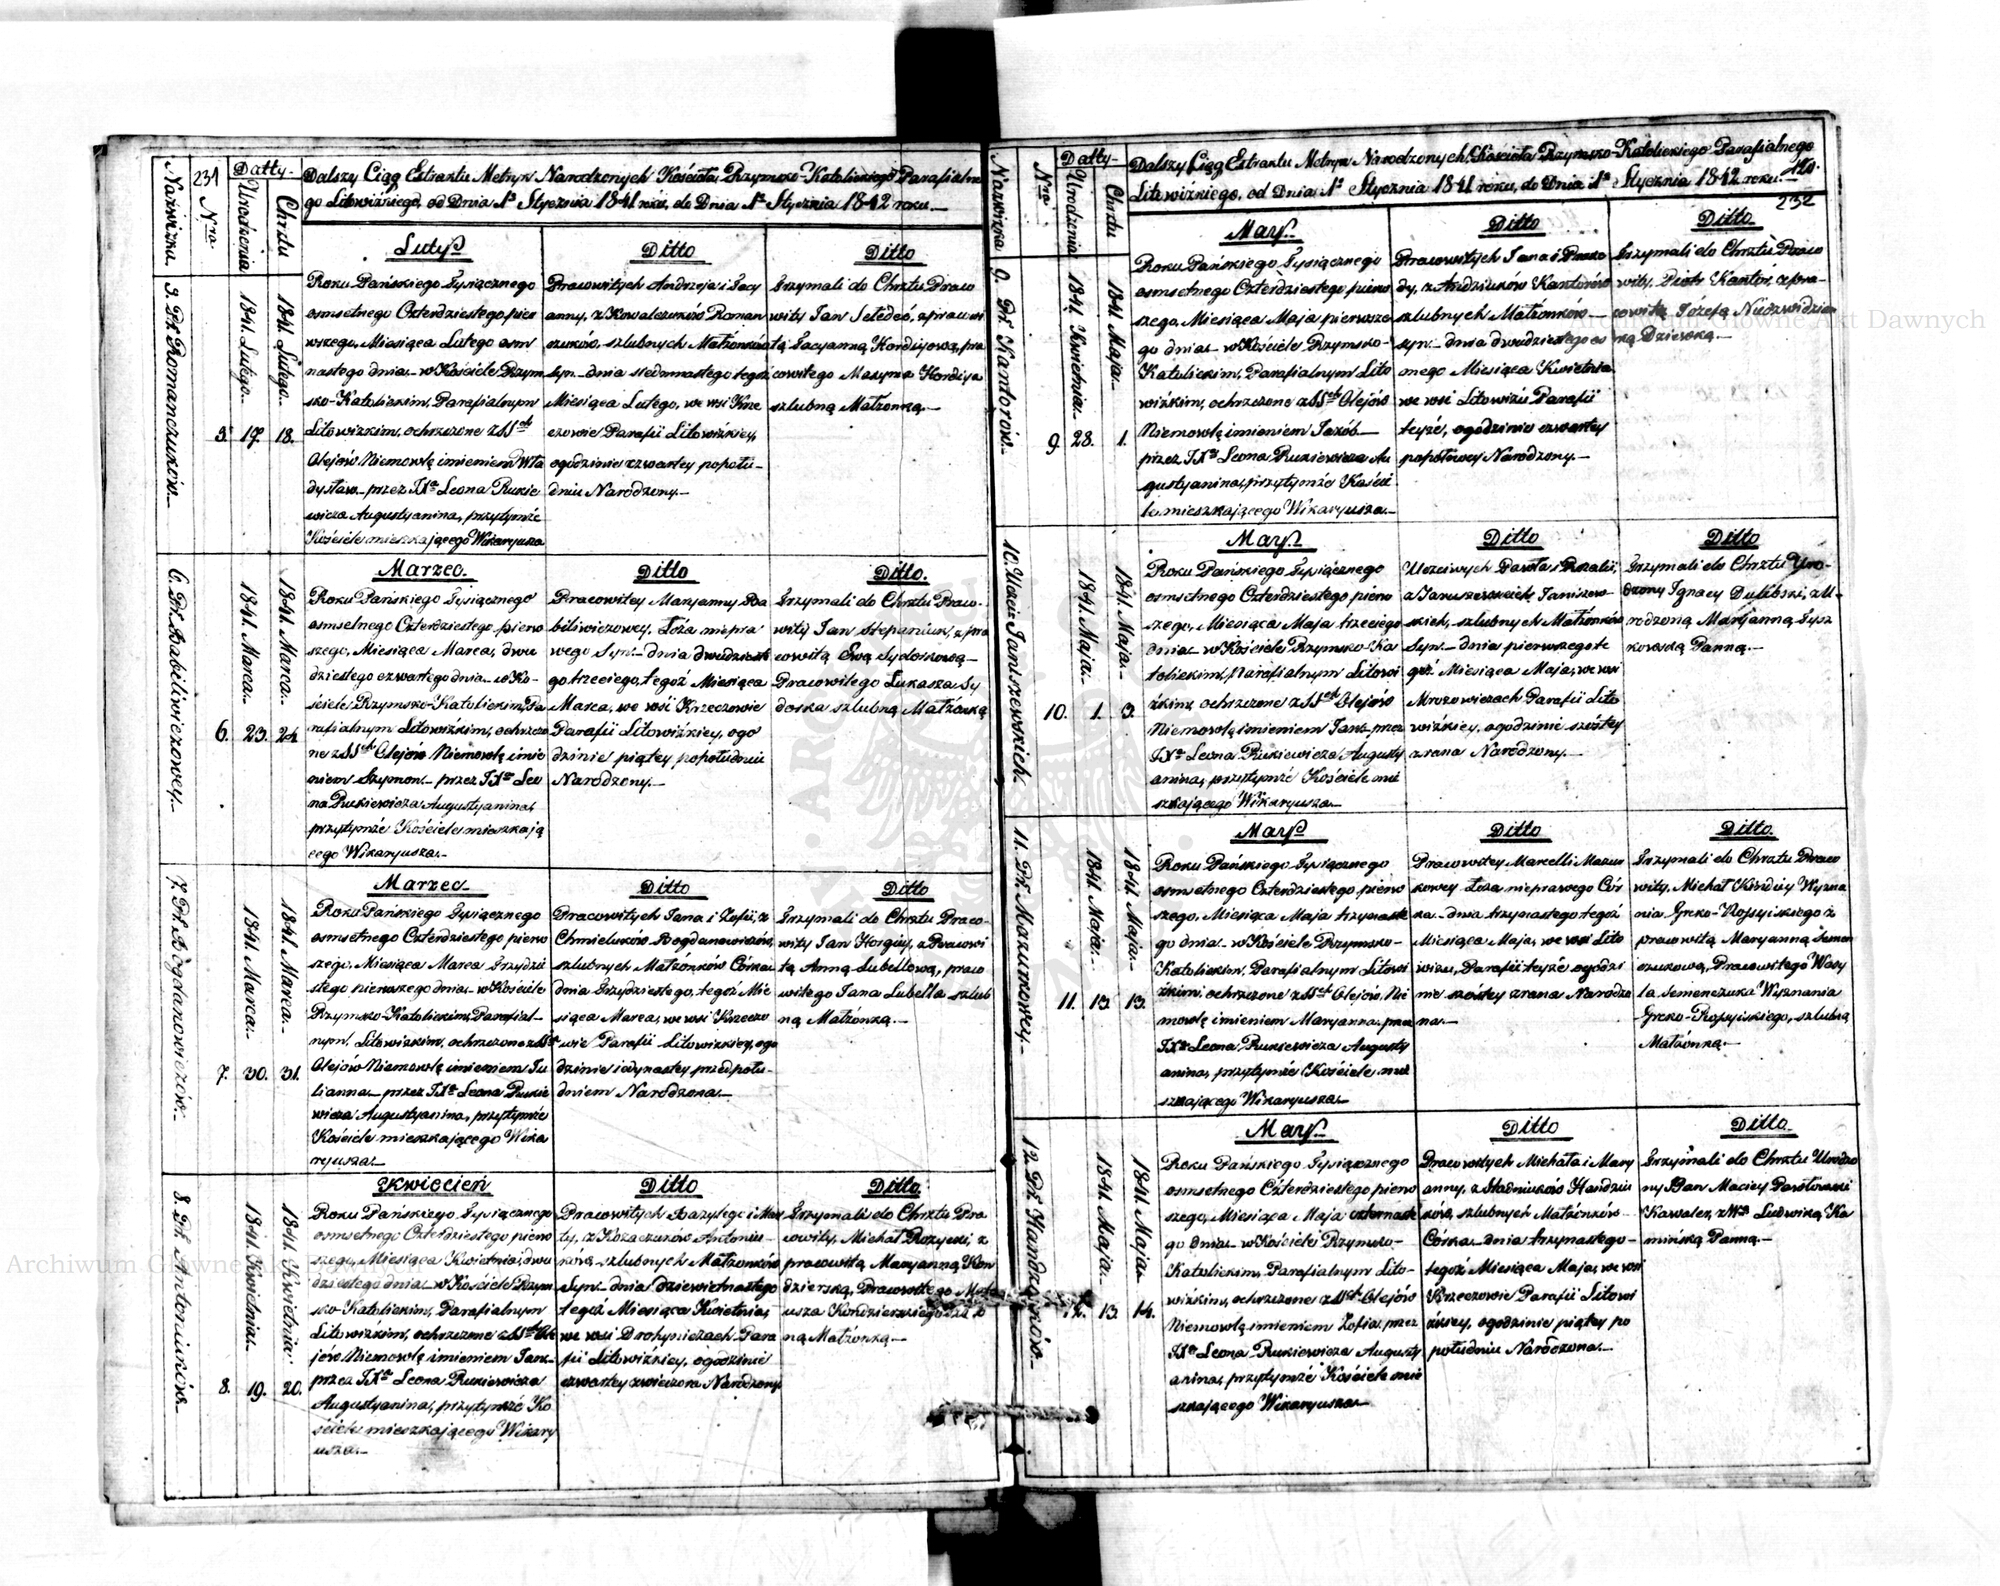 Nazwiska.
231
Nro.
Datty
Urodzenia
Chrztu
Dalszy Ciąg Extraktu Metryk Narodzonych Kościoła Rzymsko-Katolickiego Parafialne
go Litowizkiego, od Dnia 1o Stycznia 1841 roku, do Dnia 1o Stycznia 1842 roku.
5. Romanczuków.
5.
1841. Lutego.
17.
1841. Lutego.
18.
Luty
Roku Pańskiego Tysiącznego
osmsetnego Czterdziestego pier
wszego, Miesiąca Lutego osm
nastego dnia w Kościele Rzym
sko-Katolickim, Parafialnym
Litowizkim, ochrzczone z SSch
Olejów Niemowlę imieniem Wła
dysław przez Leona Rukie
wicza Augustyanina, przytymże
Kościele mieszkającego Wikaryusza
Ditto
Pracowitych Andrzeja i Tacy
anny, z Kowalczuków Roman
czuków, szlubnych Małżonków
Syn dnia siedmnastego tegoż
Miesiąca Lutego, we wsi Krze
czowie Parafii Litowizkiey,
ogodzinie czwartey popołu-
dniu Narodzony.
Ditto
Trzymali do Chrztu Praco
wity Jan z pracowi
tą Tacyanną Kordysową, pra
cowitego Maxyma Kordysa
szlubną Małżonką.
6. Babiliwiczowey.
6.
1841. Marca.
23.
1841. Marca.
24.
Marzec.
Roku Pańskiego Tysiącznego
osmsetnego Czterdziestego pierw
szego, Miesiąca Marca, dwu
dziestego czwartego dnia w Ko-
ściele Rzymsko-Katolickim, Pa
rafialnym Litowizkim, ochrzczo
ne z SSch Olejów Niemowlę imie
niem Szymon przez Leo
na Rukiewicza Augustyanina,
przytymże Kościele mieszkają
cego Wikaryusza.
Ditto
Pracowitey Maryanny Ba
biliwiczowey, Łoża niepra
wego Syn dnia dwudzieste
go trzeciego, tegoż Miesiąca
Marca, we wsi Krzeczowie
Parafii Litowizkiey, ogo
dzinie piątey popołudniu
Narodzony.
Ditto.
Trzymali do Chrztu Praco-
wity Jan Stepaniuk, z pra
cowitą Ewą Sydorkową
Pracowitego Łukasza Sy
dorka szlubną Małżonką
7. Bogdanowiczów.
7.
1841. Marca.
30.
1841. Marca.
31.
Marzec
Roku Pańskiego Tysiącznego
osmsetnego Czterdziestego pierw
szego, Miesiąca Marca Trzydzie
stego pierwszego dnia w Kościele
Rzymsko-Katolickim, Parafial-
nym, Litowizkim, ochrzczone z SSch
Olejów Niemowlę imieniem Ju
lianna przez Leona Rukie
wicza Augustyanina, przytymże
Kościele mieszkającego Wika
ryusza.
Ditto
Pracowitych Jana i Zofii, z
Chmieluków Bogdanowiczów,
szlubnych Małżonków Córka
dnia Trzydziestego, tegoż Mie
siąca Marca, we wsi Krzeczo
wie Parafii Litowizkiey, ogo
dzinie iedynastey przed połu-
dniem Narodzona.
Ditto
Trzymali do Chrztu Praco-
wity Jan z Pracowi
tą Anną Lubellową, praco
witego Jana Lubella szlub
ną Małżonką.
8. Antoniuków.
8.
1841. Kwietnia.
19.
1841. Kwietnia.
20.
Kwiecień
Roku Pańskiego Tysiącznego
osmsetnego Czterdziestego pierw
szego, Miesiąca Kwietnia, dwu
dziestego dnia w Kościele Rzym
sko-Katolickim, Parafialnym
Litowizkim, ochrzczone z SSch Ole
jów Niemowlę imieniem Jan
przez Leona Rukiewicza
Augustyanina, przytymże Ko
ściele mieszkającego Wikary
usza.
Ditto
Pracowitych Bazylego i Mar
ty, z Kozaczuków Antoniu-
ków szlubnych Małżonków
Syn dnia dziewiętnastego
tegoż Miesiąca Kwietnia,
we wsi Drohyniczach Para
fii Litowizkiey, ogodzinie
czwartey zwieczora Narodzony
Ditto.
Trzymali do Chrztu Pra
cowity, Michał Rozycki, z
pracowitą Maryanną Kon
dzierską, Pracowitego
usza Kondzierskiego
ną Małżonką.
Nazwiska
Nro.
Datty
Urodzenia
Chrztu
Dalszy Ciąg Extraktu Metryk Narodzonych, Kościoła Rzymsko-Katolickiego Parafialnego
Litowizkiego, od Dnia 1o Stycznia 1841 roku, do Dnia 1o Stycznia 1842 roku.
232
9. Kantorów.
9.
1841. Kwietnia.
28.
1841. Maja.
1.
May
Roku Pańskiego Tysiącznego
osmsetnego Czterdziestego pierw
szego, Miesiąca Maja pierwsze
go dnia w Kościele Rzymsko-
Katolickim, Parafialnym Lito
wizkim, ochrzczone z SSch Olejów
Niemowlę imieniem Jakób
przez Leona Rukiewicza Au
gustyanina, przytymże Koście
le mieszkającego Wikaryusza.
Ditto
Pracowitych Jana i Prako
dy, z Andziuków Kantorów
szlubnych Małżonków
syn dnia dwudziestego os
mego Miesiąca Kwietnia
we wsi Litowizu Parafii
teyże, ogodzinie czwartey
popołnocy Narodzony.
Ditto
Trzymali do Chrztu Praco
wity, Piotr Kantor, z pra-
cowitą Józefą Niedzwidzien
ką Dziewką.
10. Janiszewskich.
10.
1841. Maja.
1.
1841. Maja.
3.
May
Roku Pańskiego Tysiącznego
osmsetnego Czterdziestego pierw
szego, Miesiąca Maja trzeciego
dnia w Kościele Rzymsko-Ka
tolickim, Parafialnym Litowi
zkim, ochrzczone z SSch Olejów
Niemowlę imieniem Jan, przez
Leona Rukiewicza, Augusty
anina, przytymże Kościele mie
szkającego Wikaryusza.
Ditto
Uczciwych Pawła i Rozalii,
z Januszewskich Janiszew-
skich, szlubnych Małżonków
Syn dnia pierwszego te
goż Miesiąca Maja, we wsi
Mrozowiczach Parafii Lito
wizkiey, ogodzinie szóstey
zrana Narodzony.
Ditto
Trzymali do Chrztu Uro-
dzony Ignacy Dulibski, z U-
rodzoną Maryanną Tysz
kowską Panną.
11. Mazurkowey.
11.
1841. Maja.
13.
1841. Maja.
13.
May
Roku Pańskiego Tysiącznego
osmsetnego Czterdziestego pierw
szego, Miesiąca Maja trzynaste
go dnia w Kościele Rzymsko-
Katolickim, Parafialnym Litowi
zkim, ochrzczone z SSch Olejów, Nie
mowlę imieniem Maryanna, przez
Leona Rukiewicza Augusty
anina, przytymże Kościele mie
szkającego Wikaryusza.
Ditto
Pracowitey Marcelli Mazur
kowey Łoża nieprawego Cór
ka dnia trzynastego tegoż
Miesiąca Maja, we wsi Lito
wizu, Parafii teyże ogodzi
nie szóstey zrana Narodzo
na.
Ditto.
Trzymali do Chrztu Praco
wity, Michał Kordiy Wyzna
nia Greko-Rossyiskiego z
pracowitą Maryanną Semen
czukową, Pracowitego Wasy
la Semenczuka Wyznania
Greko-Rossyiskiego, szlubną
Małżonką.
12. Handziuków.
12.
1841. Maja.
13.
1841. Maja.
14.
May
Roku Pańskiego Tysiącznego
osmsetnego Czterdziestego pierw
szego, Miesiąca Maja czternaste
go dnia w Kościele Rzymsko-
Katolickim, Parafialnym Lito-
wizkim, ochrzczone z SSch Olejów
Niemowlę imieniem Zofia, przez
Leona Rukiewicza Augusty
anina, przytymże Kościele mie
szkającego Wikaryusza
Ditto
Pracowitych Michała i Mary
anny, z Stadniuków Handziu
ków, szlubnych Małżonków
Córka dnia trzynastego
tegoż Miesiąca Maja, we wsi
Krzeczowie Parafii Litowi
zkiey, ogodzinie piątey po
południu Narodzona.
Ditto.
Trzymali do Chrztu Urodzo
ny Pan Maciey Pawłowski
Kawaler, z Ludwiką Ka
mińską Panną.
Archiwum Główne Akt Dawnych